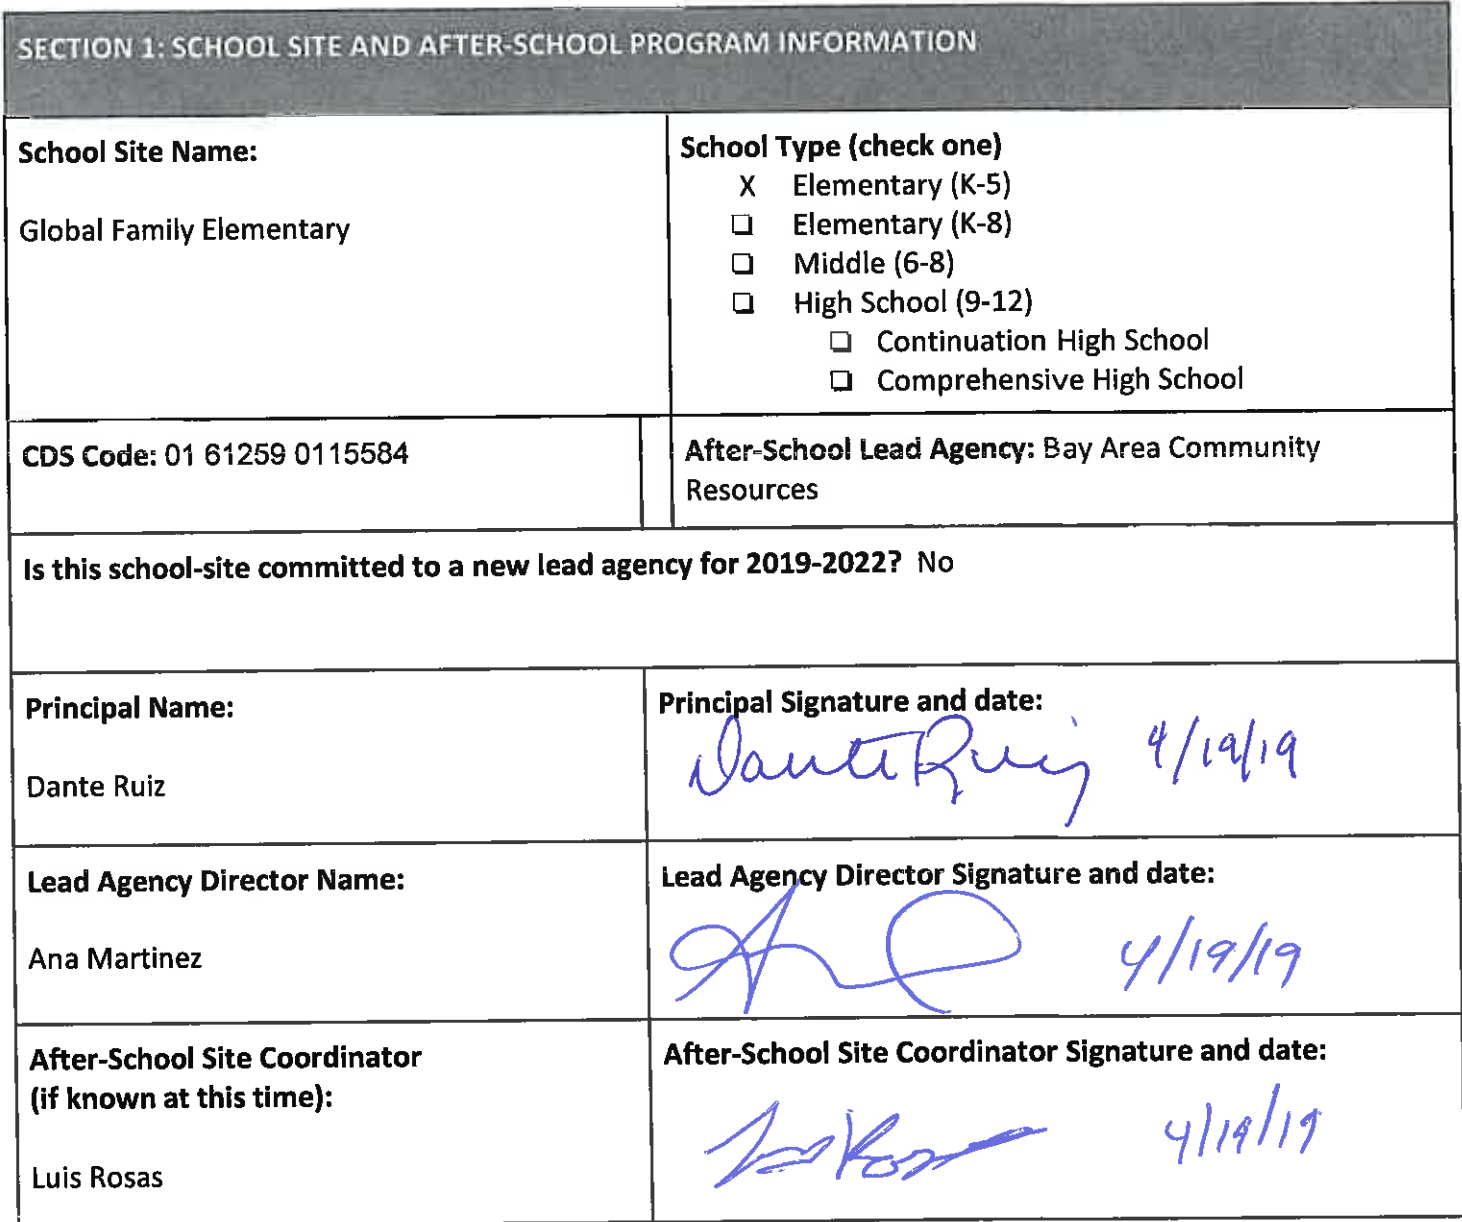 SECTION 1: SCHOOL SITE AND AFTER-SCHOOL PROGRAM INFORMATION
School Site Name:
Global Family Elementary
School Type (check one)
X Elementary (K-5)
❑ Elementary (K-8)
❑ Middle (6-8)
❑ High School (9-12)
❑ Continuation High School
❑ Comprehensive High School
CDS Code: 01 61259 0115584
After-School Lead Agency: Bay Area Community
Resources
Is this school-site committed to a new lead agency for 2019-2022? No
Principal Name:
Dante Ruiz
Principal Signature and date:
Dante Ruiz 4/19/19
Lead Agency Director Name:
Ana Martinez
Lead Agency Director Signature and date:
4/19/19
After-School Site Coordinator
(if known at this time):
Luis Rosas
After-School Site Coordinator Signature and date:
4/19/19